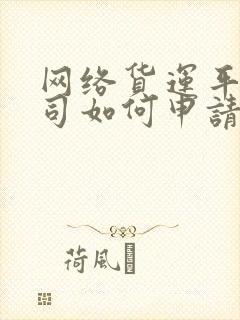 网络货運平
司如何申請
荷風